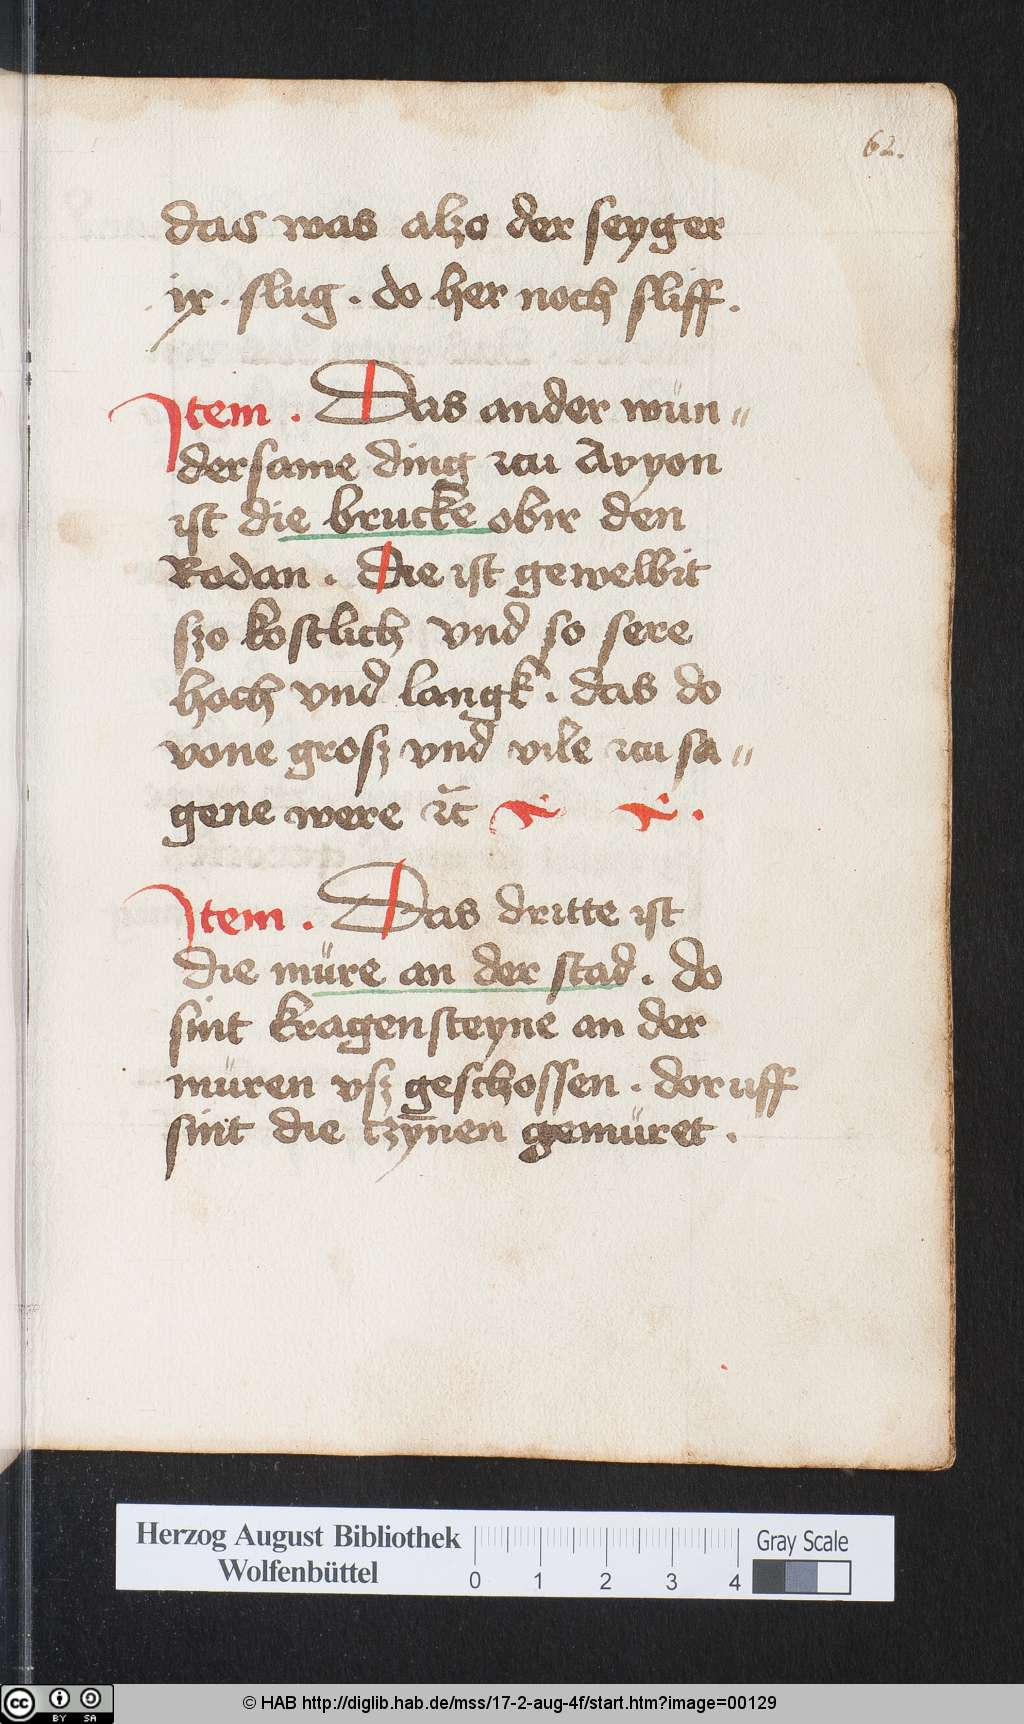 62.
das was alzo der seyger
. ix . slug . do her noch sliff .
Item . Das ander wün〃
dersame ding zcu Avyon
ist die brucke obir den
Rodan . Die ist gewelbit
szo kostlich vnd so sere
hoch vnd langk . das do
vone grosz vnd vile zcu sa〃
gene were
Item . Das dritte ist
die müre an der stad . do
sint kragensteyne an der
müren vsz geschossen . doruff
sint die czÿnen gemüret .
Herzog August Bibliothek
Wolfenbüttel
0 1 2 3 4
Gray Scale
cc BY SA
© HAB http://diglib.hab.de/mss/17-2-aug-4f/start.htm?image=00129